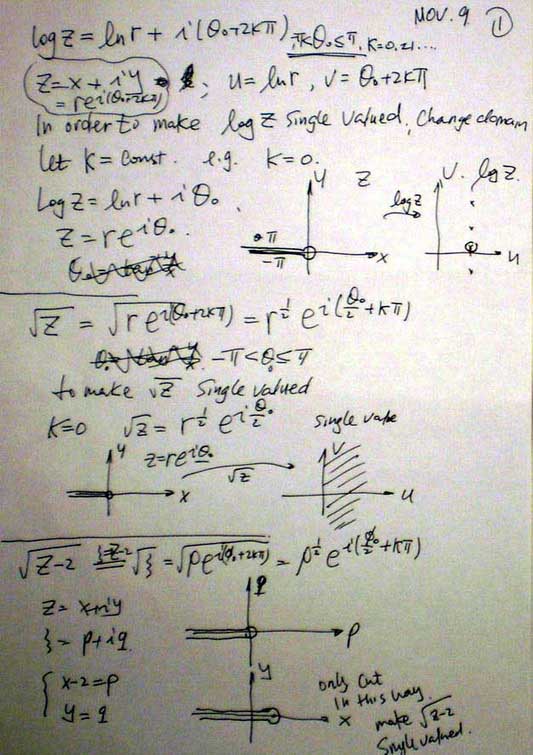 NOV. 9 ①
log z = ln r + i(θ₀+2kπ), -π<θ₀≤π, k=0,±1....
z=x+iy ; u=ln r, v=θ₀+2kπ
= re^{i(θ₀+2kπ)}
In order to make log z single valued, change domain
let k=const. e.g. k=0.
Log z = ln r + iθ₀.
z=re^{iθ₀}.
y z
π
-π
x
log z
v. log z.
u
√z = √re^{i(θ₀+2kπ)} = r^{1/2} e^{i(θ₀/2+kπ)}
-π<θ₀≤π
to make √z single valued
k=0 √z = r^{1/2} e^{iθ₀/2}
single value
y z=re^{iθ₀}
x
√z
v
u
√z-2 ξ=z-2 √ξ = √ρe^{i(φ₀+2kπ)} = ρ^{1/2} e^{i(φ₀/2+kπ)}
z=x+iy
ξ=p+iq.
q
p
{ x-2=p
y=q
y
x
only cut
in this way.
make √z-2
single valued.